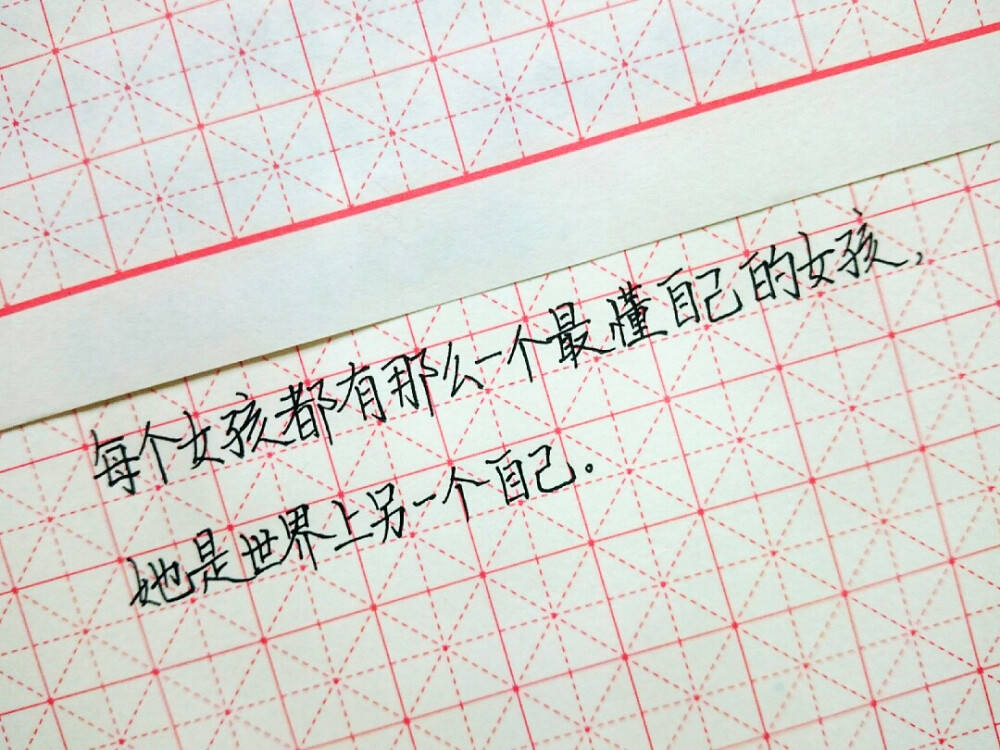 每个女孩都有那么一个最懂自己的女孩，
她是世界上另一个自己。